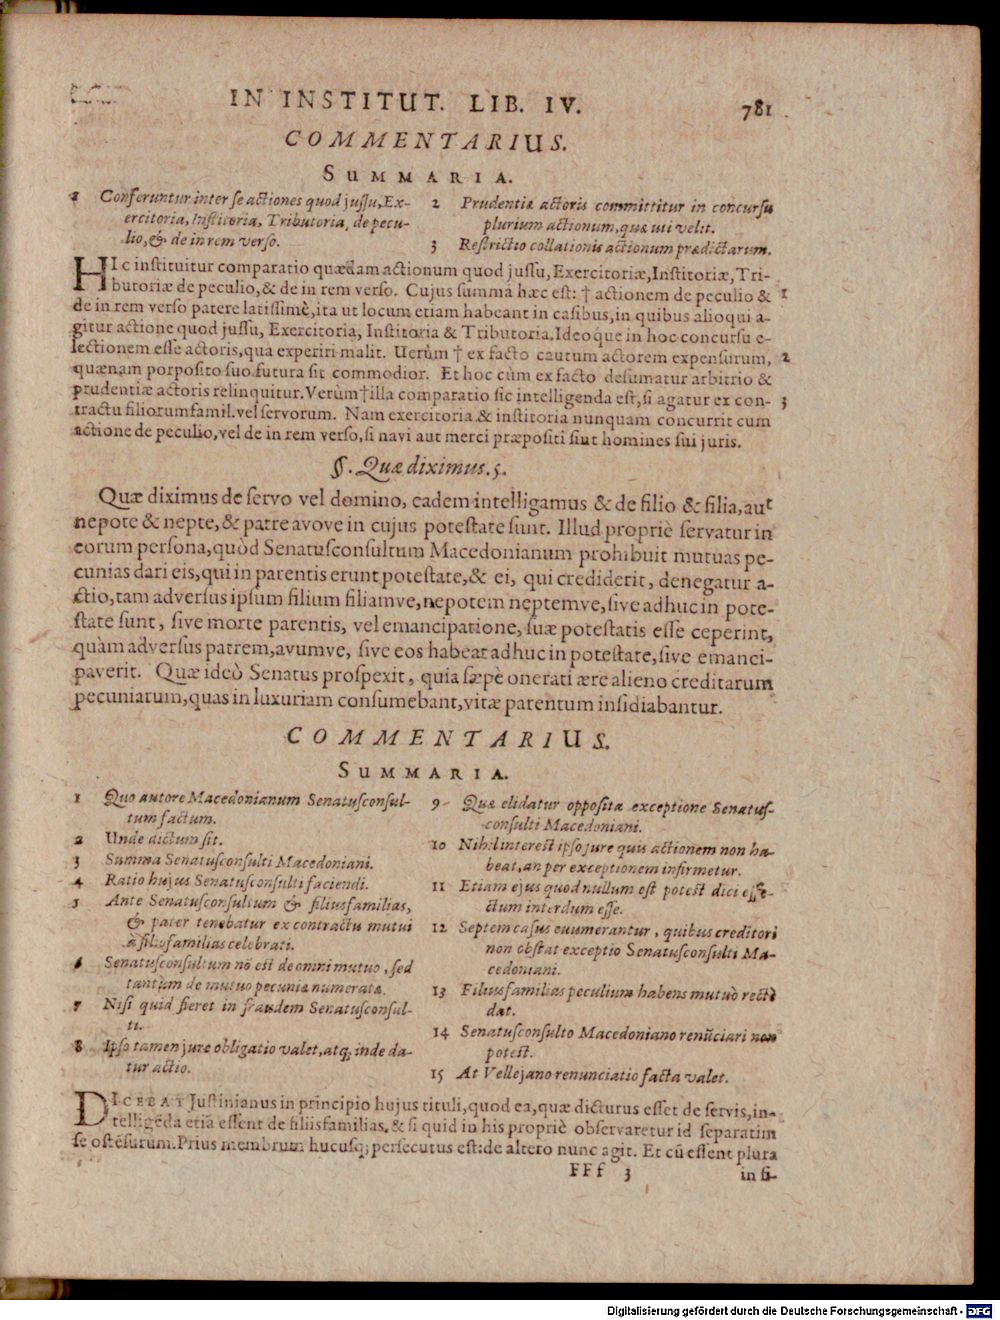 IN INSTITUT. LIB. IV. 781
COMMENTARIUS.
SUMMARIA.
1 Conferuntur inter se actiones quod jussu, Ex-
ercitoria, Institoria, Tributoria, de pecu-
lio, & de in rem verso.
2 Prudentiæ actoris committitur in concursu
plurium actionum, qua uti velit.
3 Restrictio collationis actionum prædictarum.
HIc instituitur comparatio quædam actionum quod jussu, Exercitoriæ, Institoriæ, Tri-
butoriæ de peculio, & de in rem verso. Cujus summa hæc est: † actionem de peculio & 1
de in rem verso patere latissimè, ita ut locum etiam habeant in casibus, in quibus alioqui a-
gitur actione quod jussu, Exercitoria, Institoria & Tributoria. Ideoque in hoc concursu e-
lectionem esse actoris, qua experiri malit. Uerùm † ex facto cautum actorem expensurum, 2
quænam porposito suo futura sit commodior. Et hoc cùm ex facto desumatur arbitrio &
prudentiæ actoris relinquitur. Verùm † illa comparatio sic intelligenda est, si agatur ex con- 3
tractu filiorumfamil. vel servorum. Nam exercitoria & institoria nunquam concurrit cum
actione de peculio, vel de in rem verso, si navi aut merci præpositi sint homines sui juris.
§. Quæ diximus. 5.
Quæ diximus de servo vel domino, eadem intelligamus & de filio & filia, aut
nepote & nepte, & patre avove in cujus potestate sunt. Illud propriè servatur in
eorum persona, quòd Senatusconsultum Macedonianum prohibuit mutuas pe-
cunias dari eis, qui in parentis erunt potestate, & ei, qui crediderit, denegatur a-
ctio, tam adversus ipsum filium filiamve, nepotem neptemve, sive adhuc in pote-
state sunt, sive morte parentis, vel emancipatione, suæ potestatis esse ceperint,
quàm adversus patrem, avumve, sive eos habeat adhuc in potestate, sive emanci-
paverit. Quæ ideò Senatus prospexit, quia sæpè onerati ære alieno creditarum
pecuniarum, quas in luxuriam consumebant, vitæ parentum insidiabantur.
COMMENTARIUS.
SUMMARIA.
1 Quo autore Macedonianum Senatusconsul-
tum factum.
2 Unde dictum sit.
3 Summa Senatusconsulti Macedoniani.
4 Ratio hujus Senatusconsulti faciendi.
5 Ante Senatusconsultum & filiusfamilias,
& pater tenebatur ex contractu mutui
à filiofamilias celebrati.
6 Senatusconsultum nō est de omni mutuo, sed
tantùm de mutuo pecuniæ numeratæ.
7 Nisi quid fieret in fraudem Senatusconsul-
ti.
8 Ipso tamen jure obligatio valet, atq; inde da-
tur actio.
9 Quæ elidatur opposita exceptione Senatus-
consulti Macedoniani.
10 Nihil interest ipso jure quis actionem non ha-
beat, an per exceptionem infirmetur.
11 Etiam ejus quod nullum est potest dici effe-
ctum interdum esse.
12 Septem casus enumerantur, quibus creditori
non obstat exceptio Senatusconsulti Ma-
cedoniani.
13 Filiusfamilias peculium habens mutuò rectè
dat.
14 Senatusconsulto Macedoniano renūciari non
potest.
15 At Vellejano renunciatio facta valet.
DICEBAT Justinianus in principio hujus tituli, quod ea, quæ dicturus esset de servis, in-
telligēda etiā essent de filiisfamilias, & si quid in his propriè observaretur id separatim
se ostēsurum. Prius membrum hucusq; persecutus est: de altero nunc agit. Et cū essent plura
FFf 3 in si-
Digitalisierung gefördert durch die Deutsche Forschungsgemeinschaft - DFG